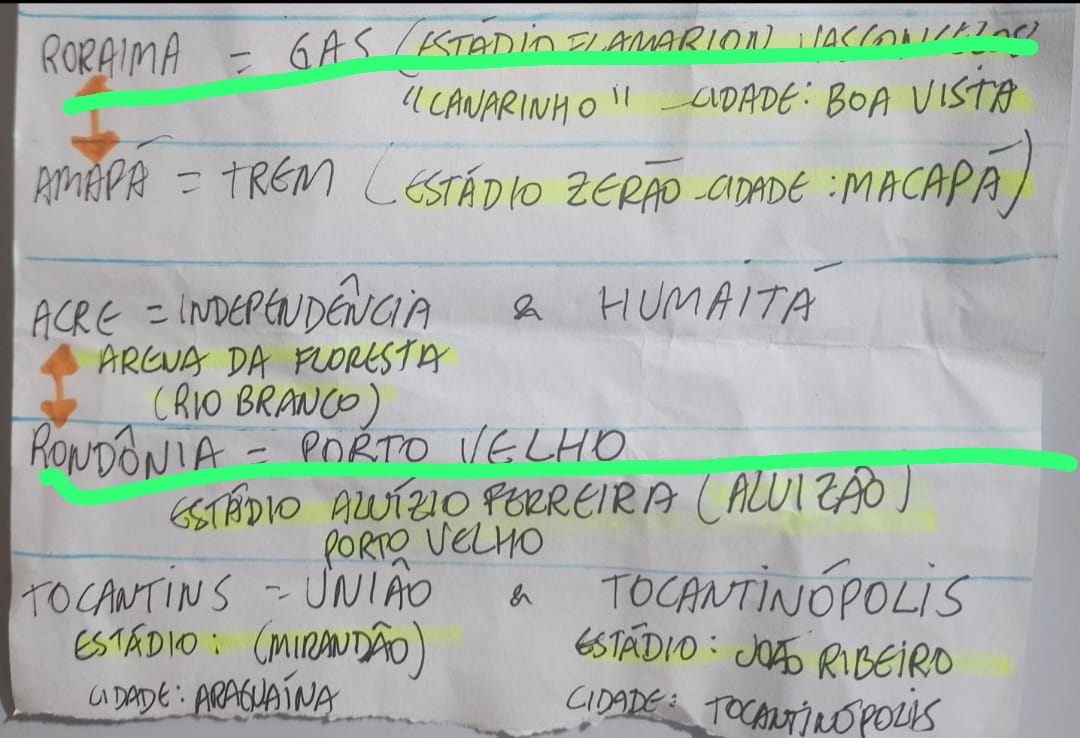 RORAIMA = GAS (ESTÁDIO FLAMARION VASCONCELOS
"CANARINHO" - CIDADE: BOA VISTA
AMAPÁ = TREM (ESTÁDIO ZERÃO - CIDADE: MACAPÁ)
ACRE = INDEPENDÊNCIA & HUMAITÁ
ARENA DA FLORESTA
(RIO BRANCO)
RONDÔNIA = PORTO VELHO
ESTÁDIO ALUÍZIO FERREIRA (ALUIZÃO)
PORTO VELHO
TOCANTINS = UNIÃO & TOCANTINÓPOLIS
ESTÁDIO: (MIRANDÃO) ESTÁDIO: JOÃO RIBEIRO
CIDADE: ARAGUAÍNA CIDADE: TOCANTINÓPOLIS